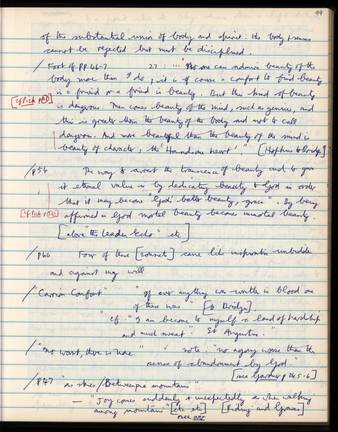 99
of the substantial union of body and spirit: the body & senses
cannot be rejected but must be disciplined.
/ Foot of PP 46-7 27: .... "No one can admire beauty of the
body more than I do, & it is of course a comfort to find beauty
in a friend or a friend in beauty. But this kind of beauty
is dangerous. Then comes beauty of the mind, such as genius, and
this is greater than the beauty of the body and not to call
dangerous. And more beautiful than the beauty of the mind is
beauty of character, the 'Handsome heart'." [Hopkins to Bridges]
/ p54 The way to arrest the transience of beauty and to give
it eternal value is by dedicating beauty to God in order
that it may become 'God's better beauty, grace'. By being
offered to God mortal beauty becomes immortal beauty.
[above the Leaden Echo" etc]
/ p60 Four of these [sonnets] came like inspirations unbidden
and against my will
/ "Carrion Comfort" " if ever anything was written in blood one
of these was" [to Bridges]
"cf "I am become to myself a land of hardship
and much sweat". St Augustine."
/ "No worst, there is none" note: "no agony worse than the
sense of abandonment by God"
[see Gardner p 245-6]
/ P47 "as skies / Betweenpie mountains"
— "Joy comes suddenly & unexpectedly as when walking
among mountains" [etc etc] [Pick, and Graves]